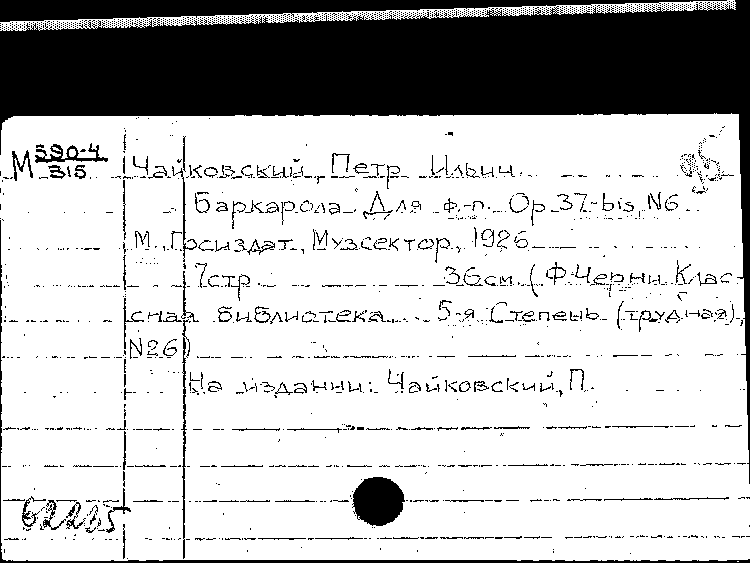 М 590-4
315
Чайковский, Петр Ильич.
Баркарола. Для ф.-п. Op. 37-bis, N6.
М., Госиздат, Музсектор, 1926
7стр 36см. (Ф.Черни Клас-
сная библиотека. 5-я Степень (трудная),
N26)
На издании: Чайковский, П.
62265